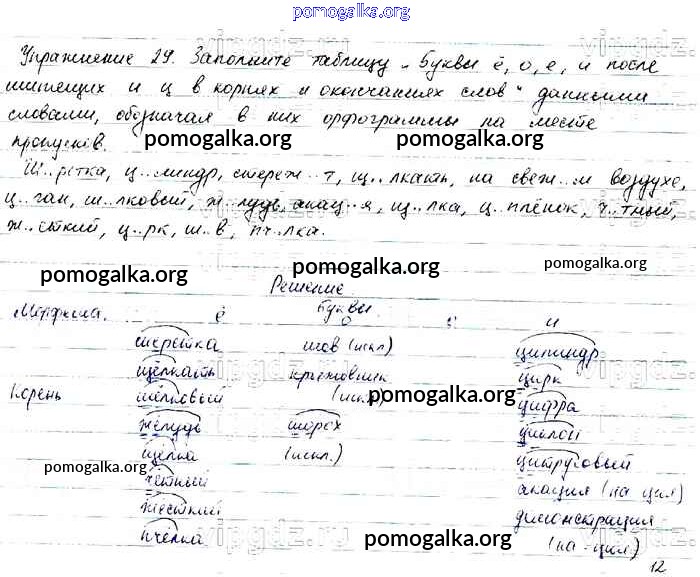 pomogalka.org
Упражнение 29. Заполните таблицу „Буквы ё, о, е, и после
шипящих и ц в корнях и окончаниях слов" данными
словами, обозначая в них орфограммы на месте
пропусков.
pomogalka.org pomogalka.org
Ш..рстка, ц..линдр, стереж..т, щ..лкать, на свеж..м воздухе,
ц..ган, ш..лковый, ж..лудь, акац..я, щ..лка, ц..плёнок, ч..тный,
ж..сткий, ц..рк, ш..в, пч..лка.
pomogalka.org pomogalka.org pomogalka.org
Решение.
Морфема. Буквы
ё о е и
шёрстка шов (искл) цилиндр
щёлкать крыжовник цирк
Корень шёлковый (искл.) pomogalka.org цифра
жёлудь шорох
щёлка (искл.) цитрусовый
pomogalka.org
чётный акация (на ция)
жёсткий демонстрация
пчёлка pomogalka.org (на -ция)
12